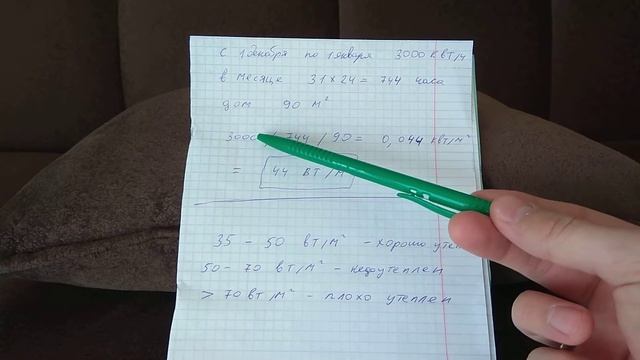 с 1 декабря по 1 января 3000 квт/ч
в месяце 31 x 24 = 744 часа
дом 90 м²
3000 / 744 / 90 = 0,044 квт/м²
= 44 вт/м
35 - 50 вт/м² - хорошо утеп
50 - 70 вт/м² - недоутеплен
> 70 вт/м² - плохо утеплен